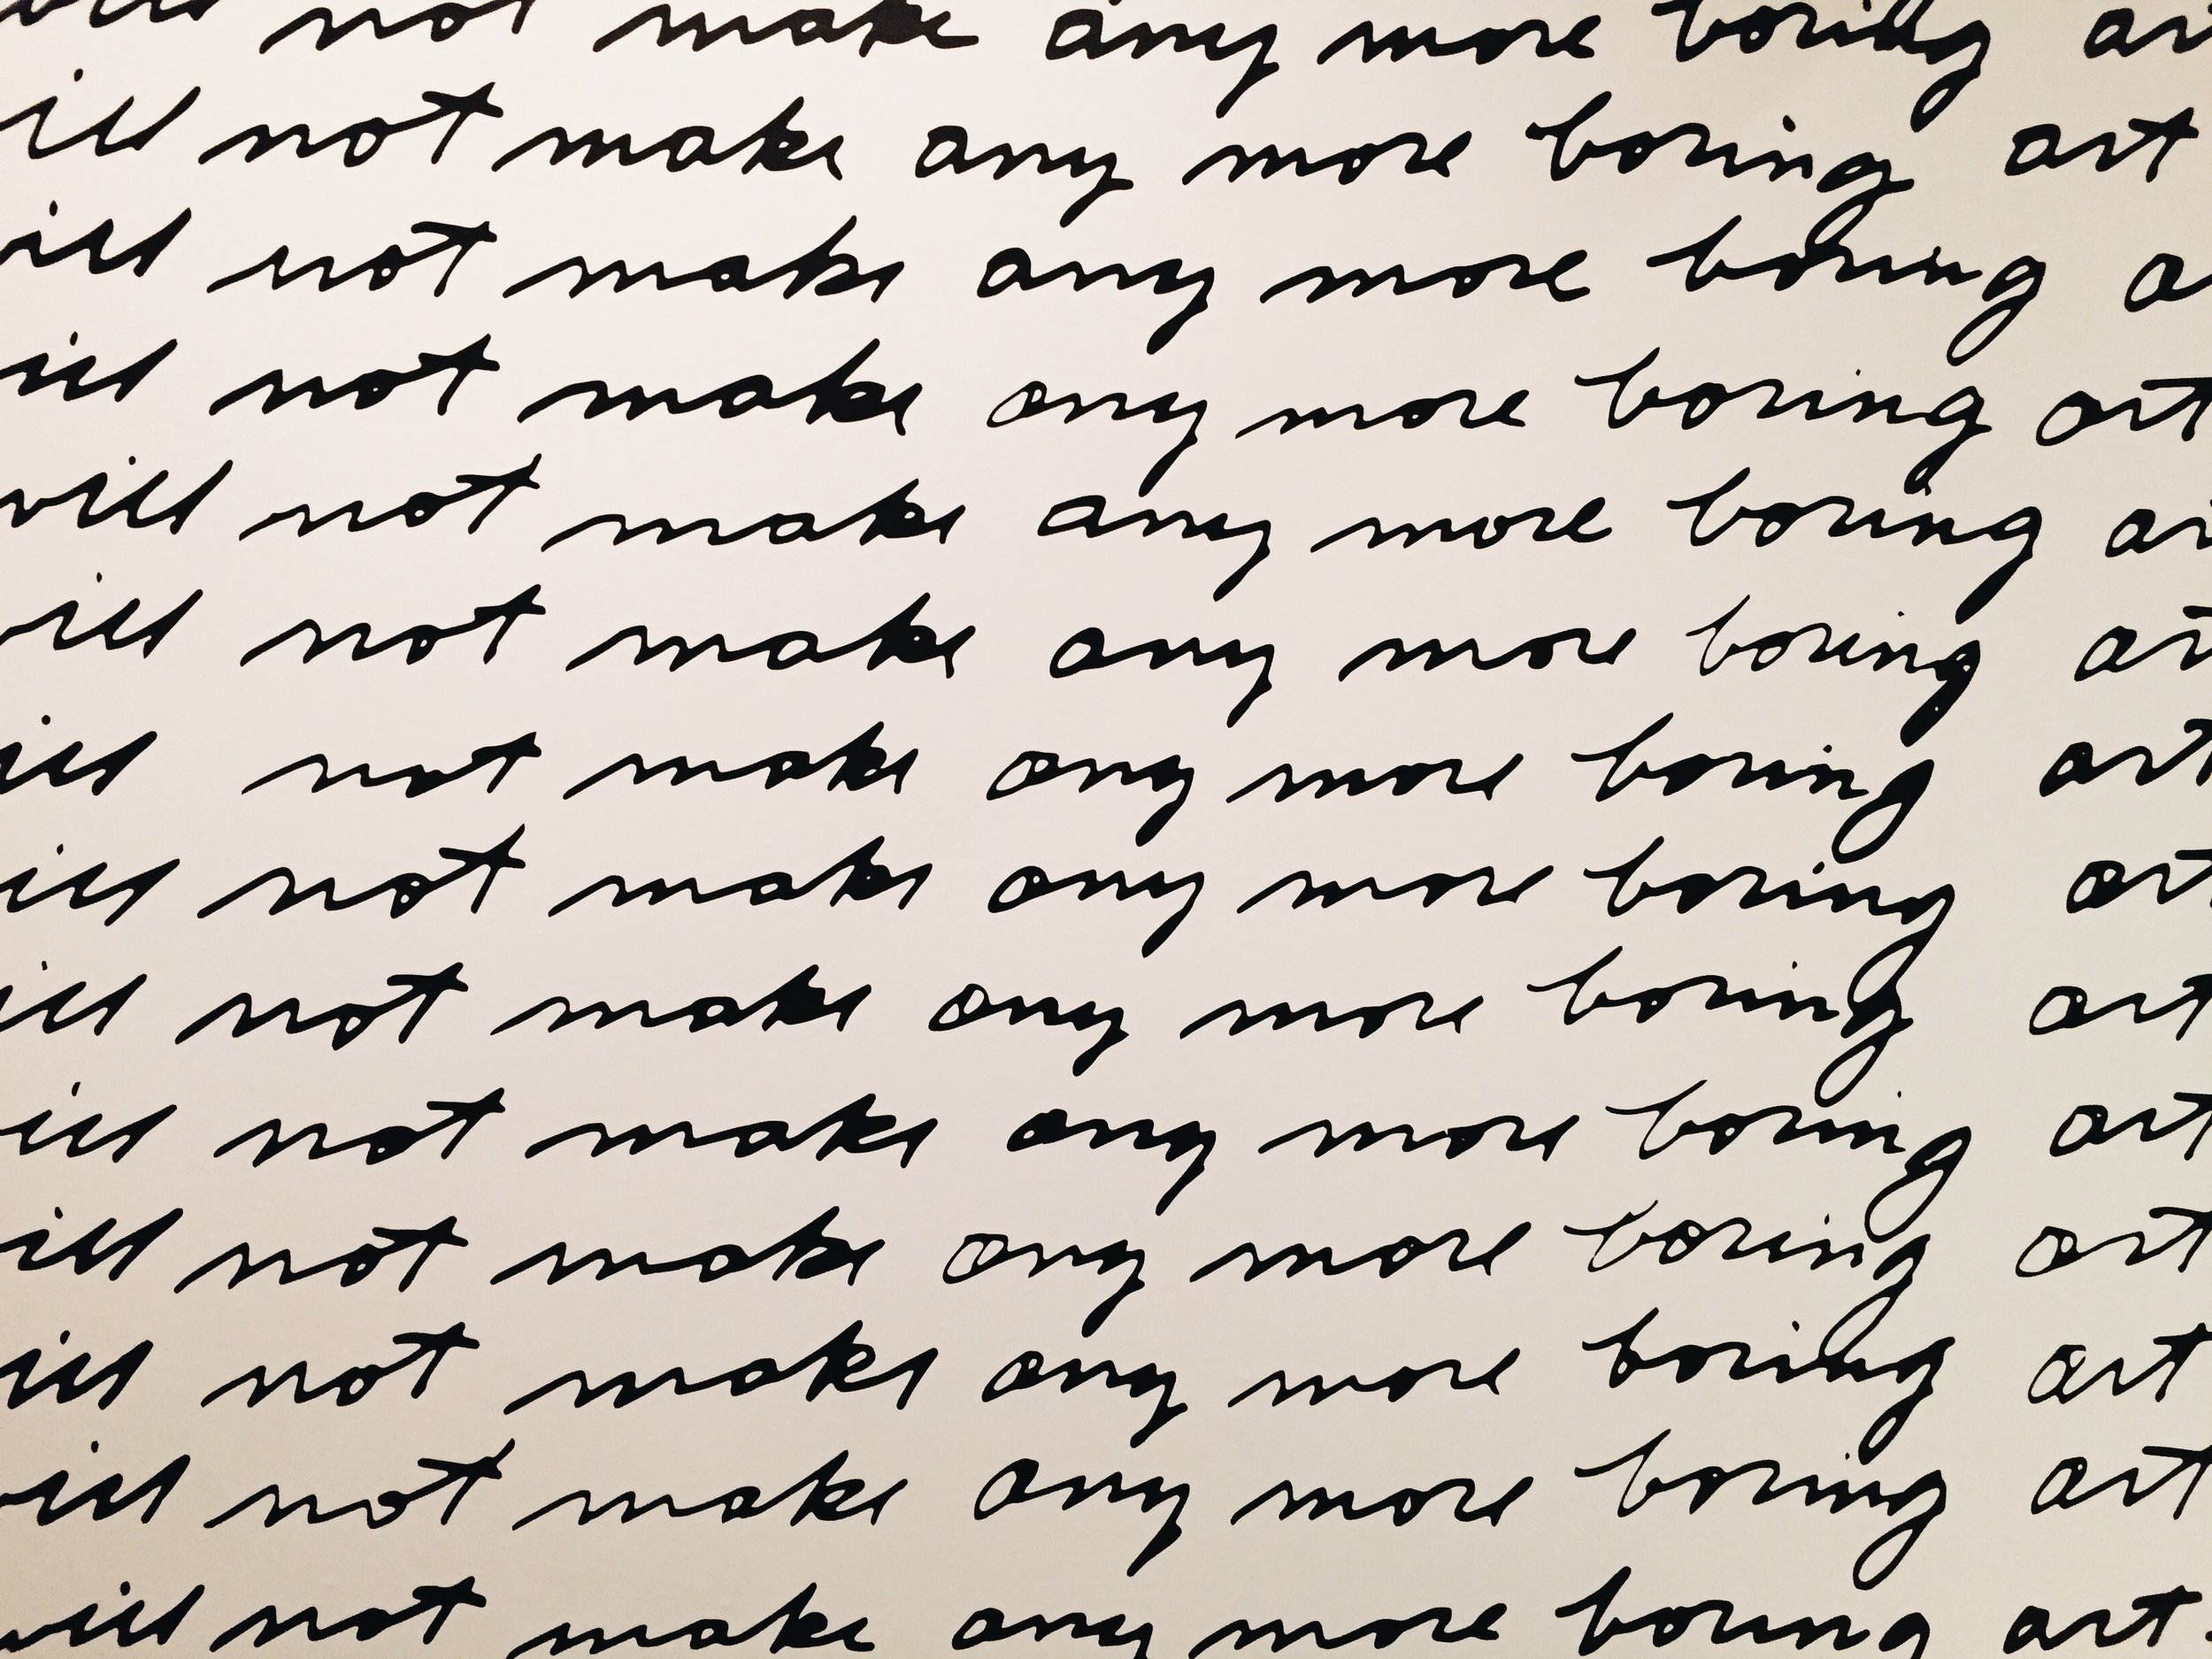 will not make any more boring ar
ill not make any more boring art
ill not make any more boring a
ill not make any more boring art
will not make any more boring ar
will not make any more boring art
ill not make any more boring art
ill not make any more boring art
ill not make any more boring art
ill not make any more boring art
ill not make any more boring art
ill not make any more boring art
will not make any more boring art
will not make any more boring art.